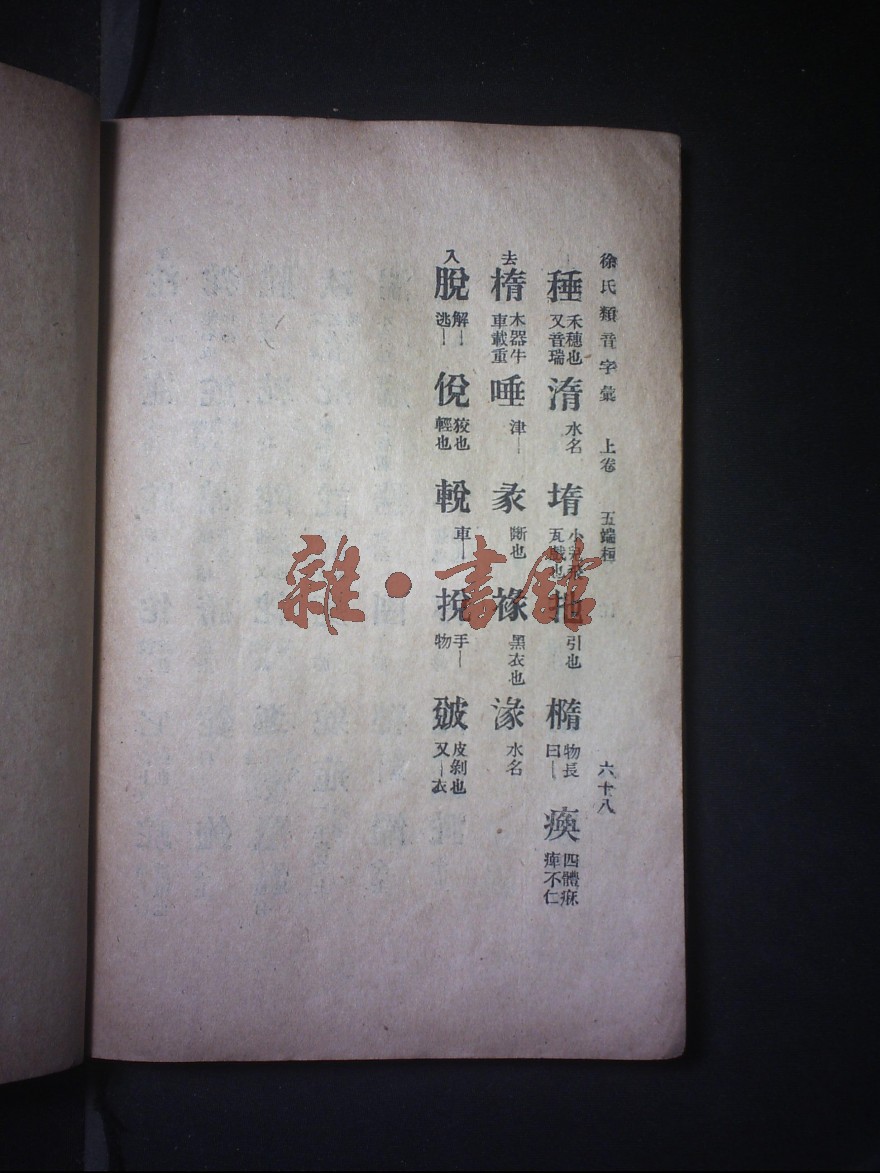 徐氏類音字彙 上卷 五端桓 六十八
䅜 禾穗也又音瑞 㵋 水名 堶 瓦戲也 拕 引也 橢 物長曰— 瘓 四體痳痺不仁
去 楕 木器牛車載重 唾 津— 彖 斷也 褖 黑衣也 湪 水名
入 脫 解—逃— 侻 狡也輕也 輗 車— 挩 手—物 皮剝也又—衣
雜·書館